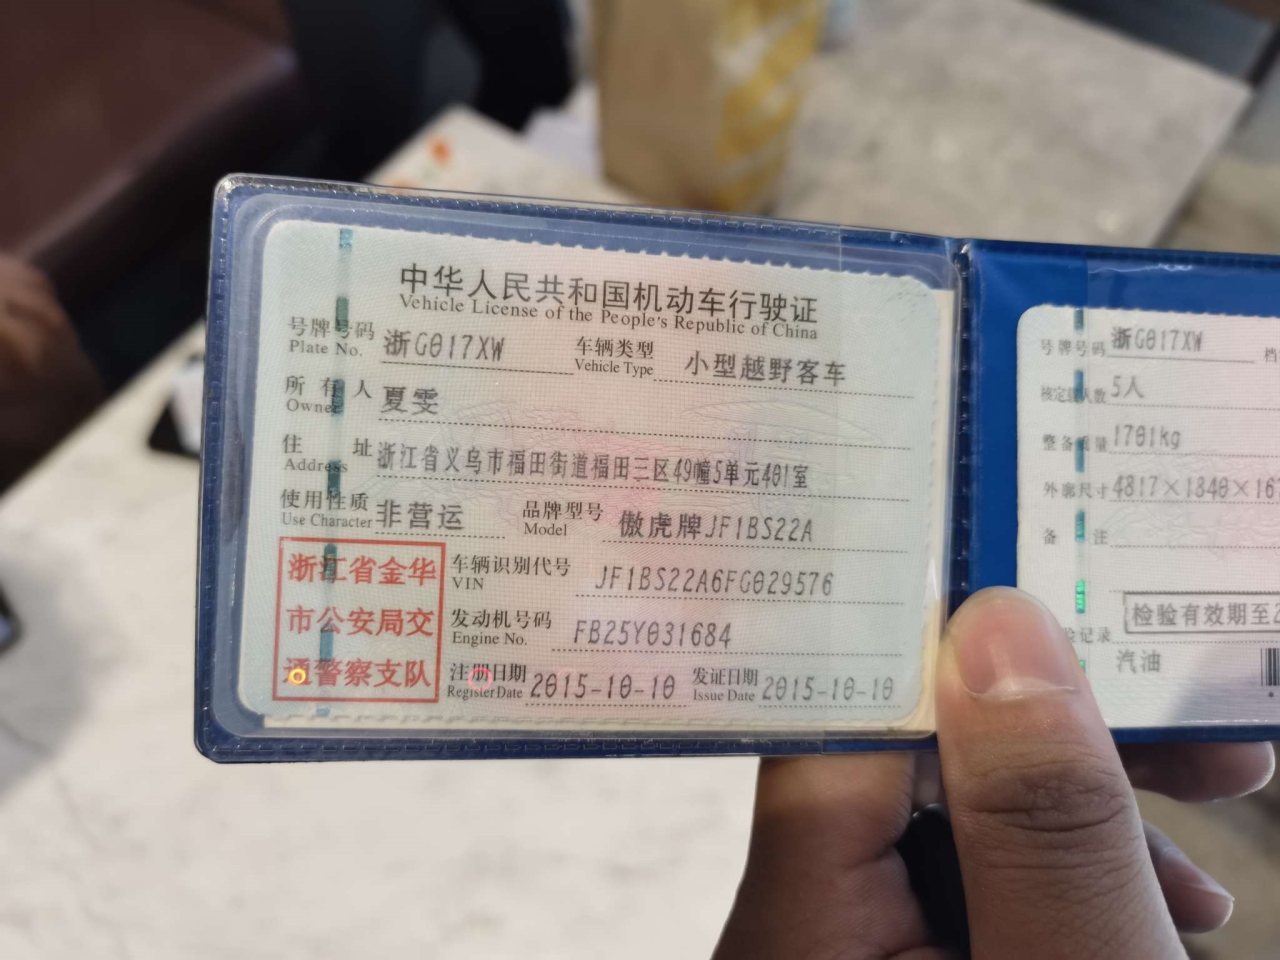 中华人民共和国机动车行驶证
Vehicle License of the People's Republic of China
号牌号码 浙G017XW 车辆类型 小型越野客车
Plate No. Vehicle Type
所有人 夏雯
Owner
住址 浙江省义乌市福田街道福田三区49幢5单元401室
Address
使用性质 非营运 品牌型号 傲虎牌JF1BS22A
Use Character Model
浙江省金华
市公安局交
通警察支队
车辆识别代号 JF1BS22A6FG029576
VIN
发动机号码 FB25Y031684
Engine No.
注册日期 2015-10-10 发证日期 2015-10-10
Register Date Issue Date
号牌号码 浙G017XW 档
核定载人数 5人
整备质量 1701kg
外廓尺寸 4817×1840×16
备注
检验有效期至
验记录
汽油